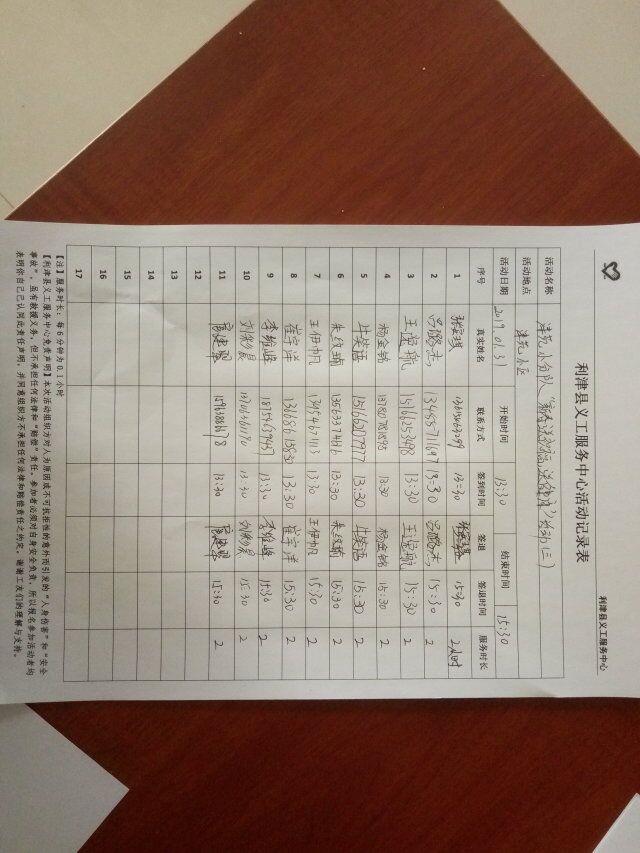 利津县义工服务中心
利津县义工服务中心活动记录表
活动名称 津苑小分队“新春送祝福，送健康”活动(三)
活动地点 津苑小区
活动日期 2019.01.31 开始时间 13:30 结束时间 15:30
序号 真实姓名 联系方式 签到时间 签退 签退时间 服务时长
1 13:30 15:30 2小时
2 吕腾杰 13455711697 13:30 吕腾杰 15:30 2
3 13:30 15:30 2
4 杨金铭 13780781898 13:30 杨金铭 15:30 2
5 牛笑涵 15166207977 13:30 牛笑涵 15:30 2
6 朱纹瑜 13563377486 13:30 朱纹瑜 15:30 2
7 王伊帆 13:30 王伊帆 15:30 2
8 崔宇洋 13:30 崔宇洋 15:30 2
9 李雅峰 13:30 李雅峰 15:30 2
10 13:30 15:30 2
11 13:30 15:30 2
12
13
14
15
16
17
【注】服务时长：每6分钟为0.1小时
【利津县义工服务中心免责声明】本次活动组织方对人为原因或不可抗拒性的意外而引发的“人身伤害”和“安全
事故”，虽有救援义务，但不承担任何法律和“赔偿”责任。参加者必须对自身安全负责，所以报名参加活动者均
表明你自己已认同此责任声明，并同意组织方不承担任何法律和赔偿责任之约定。谢谢工友们的理解与支持。